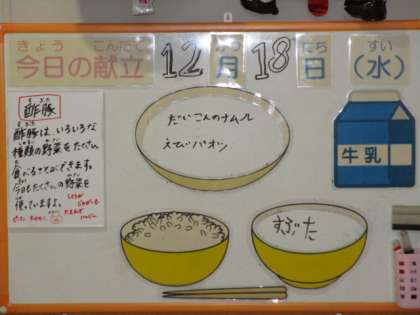 きょう こんだて すい
今日の献立 12月18日(水)
酢豚
酢豚は、いろいろな
種類の野菜をたくさん
食べることができます。
今日もたくさんの野菜を
使っていますよ。
だいこんのナムル
えびパオツ
牛乳
すぶた